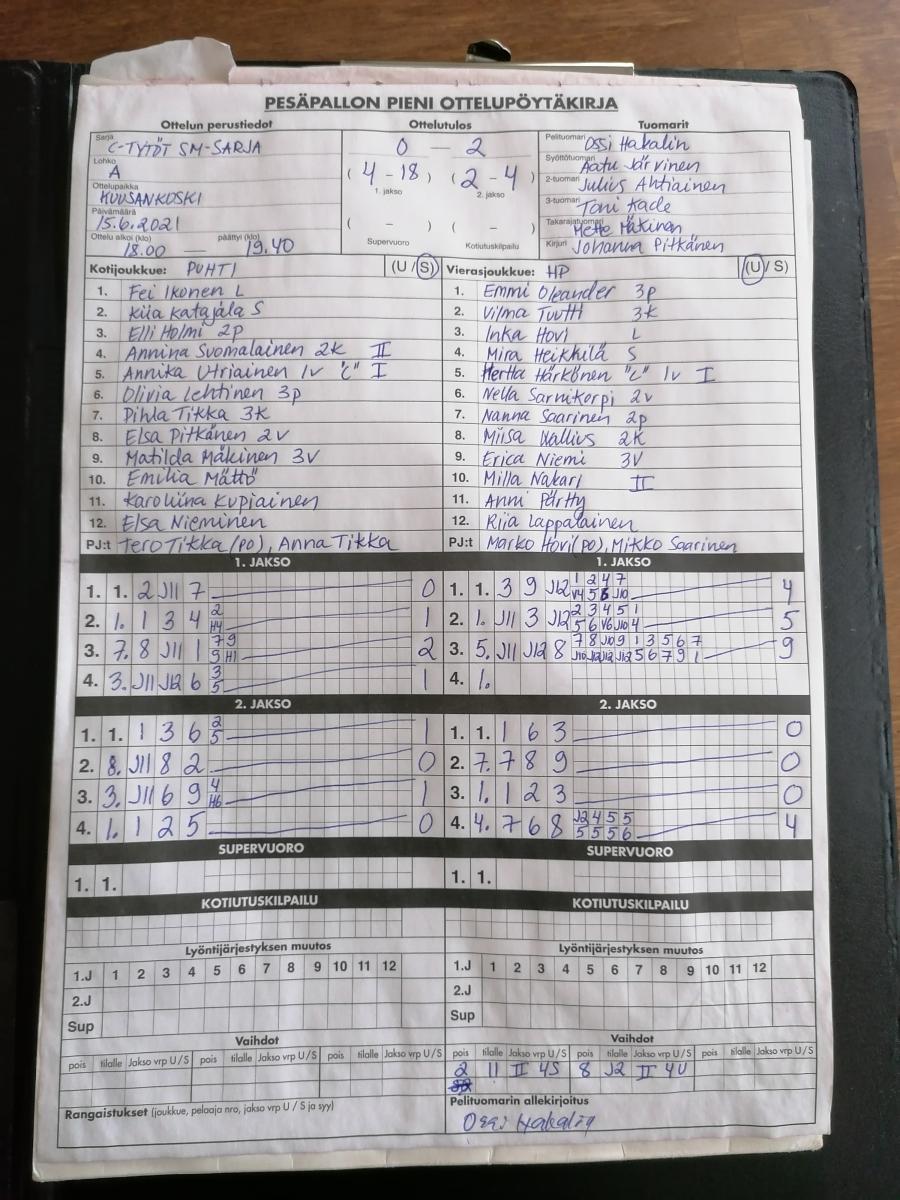 PESÄPALLON PIENI OTTELUPÖYTÄKIRJA
Ottelun perustiedot
Sarja C-TYTÖT SM-SARJA
Lohko A
Ottelupaikka KUUSANKOSKI
Päivämäärä 15.6.2021
Ottelu alkoi (klo) 18.00 — päättyi (klo) 19.40
Ottelutulos
0 — 2
(4 - 18) (2 - 4)
1. jakso 2. jakso
( - ) ( - )
Supervuoro Kotiutuskilpailu
Tuomarit
Pelituomari Ossi Hakalin
Syöttötuomari Aatu Järvinen
2-tuomari Julius Ahtiainen
3-tuomari Toni Kade
Takarajatuomari Mette Mäkinen
Kirjuri Johanna Pitkänen
Kotijoukkue: PUHTI (U/S)
1. Fei Ikonen L
2. Kiia Katajala S
3. Elli Holmi 2p
4. Annina Suomalainen 2k II
5. Annika Utriainen 1v "C" I
6. Olivia Lehtinen 3p
7. Pihla Tikka 3k
8. Elsa Pitkänen 2v
9. Matilda Mäkinen 3v
10. Emilia Mättö
11. Karoliina Kupiainen
12. Elsa Nieminen
PJ:t Tero Tikka (PO), Anna Tikka
Vierasjoukkue: HP (U/S)
1. Emmi Oleander 3p
2. Vilma Tuutti 3k
3. Inka Hovi L
4. Mira Heikkilä S
5. Hertta Härkönen "C" 1v I
6. Nella Sarnikorpi 2v
7. Nanna Saarinen 2p
8. Miisa Wallius 2k
9. Erica Niemi 3v
10. Milla Nakari II
11. Anni Pärtty
12. Riia Lappalainen
PJ:t Marko Hovi (PO), Mikko Saarinen
1. JAKSO
1. 1. 2 J11 7 0
2. 1. 1 3 4 2 H4 1
3. 7. 8 J11 1 7 9 9 H1 2
4. 3. J11 J12 6 3 5 1
1. JAKSO
1. 1. 3 9 J12 1 2 4 7 V4 5 6 J10 4
2. 1. J11 3 J12 2 3 4 5 1 5 6 V6 J10 4 5
3. 5. J11 J12 8 7 8 J10 9 1 3 5 6 7 J10 J12 J12 J12 5 6 7 9 1 9
4. 1.
2. JAKSO
1. 1. 1 3 6 2 5 1
2. 8. J11 8 2 0
3. 3. J11 6 9 4 H6 1
4. 1. 1 2 5 0
2. JAKSO
1. 1. 1 6 3 0
2. 7. 7 8 9 0
3. 1. 1 2 3 0
4. 4. 7 6 8 J2 4 5 5 5 5 5 6 4
SUPERVUORO
1. 1.
SUPERVUORO
1. 1.
KOTIUTUSKILPAILU
KOTIUTUSKILPAILU
Lyöntijärjestyksen muutos
1.J 1 2 3 4 5 6 7 8 9 10 11 12
2.J
Sup
Lyöntijärjestyksen muutos
1.J 1 2 3 4 5 6 7 8 9 10 11 12
2.J
Sup
Vaihdot
pois tilalle Jakso vrp U/S pois tilalle Jakso vrp U/S pois tilalle Jakso vrp U/S
Vaihdot
pois tilalle Jakso vrp U/S pois tilalle Jakso vrp U/S pois tilalle Jakso vrp U/S
2 11 II 4S 8 J2 II 4U
Rangaistukset (joukkue, pelaaja nro, jakso vrp U / S ja syy)
Pelituomarin allekirjoitus
Ossi Hakalin